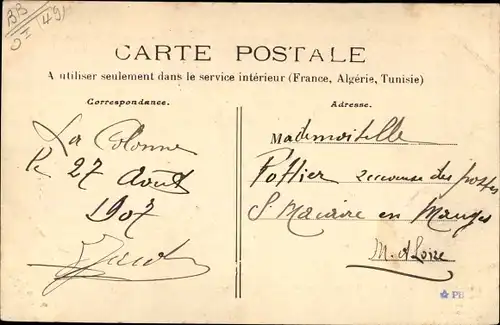 BB
49
CARTE POSTALE
A utiliser seulement dans le service intérieur (France, Algérie, Tunisie)
Correspondance.
La Colonne
le 27 Août
1907
Adresse.
Mademoiselle
Pottier receveuse des postes
St Macaire en Mauges
M. et Loire
PB